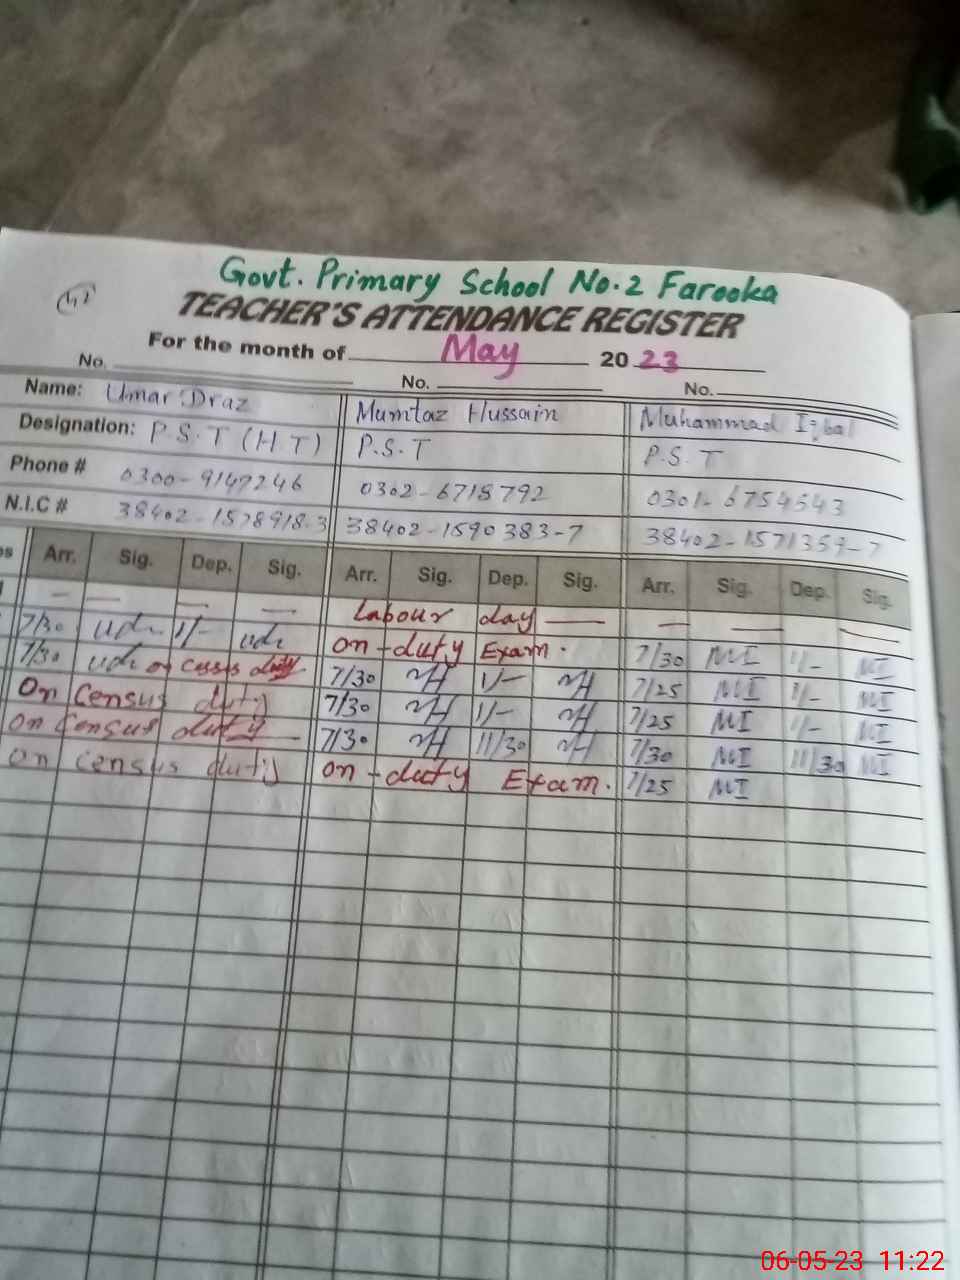 Govt. Primary School No.2 Farooka
TEACHER'S ATTENDANCE REGISTER
For the month of May 2023
No. No. No.
Name: Umar Draz Mumtaz Hussain Muhammad Iqbal
Designation: P.S.T (H.T) P.S.T P.S.T
Phone # 0300-9147246 0302-6718792 0301-6754543
N.I.C # 38402-1578918-3 38402-1590383-7 38402-1571359-7
Arr. Sig. Dep. Sig. Arr. Sig. Dep. Sig. Arr. Sig. Dep. Sig.
— — — — Labour day — — — —
7/30 1/- on-duty Exam. 7/30 MI 1/- MI
7/30 duty 7/30 MH 1/- MH 7/25 MI 1/- MI
On Census duty 7/30 MH 1/- MH 7/25 MI 1/- MI
on Census duty 7/30 MH 11/30 MH 7/30 MI 11/30 MI
on census duty on-duty Exam. 7/25 MI
06-05-23 11:22